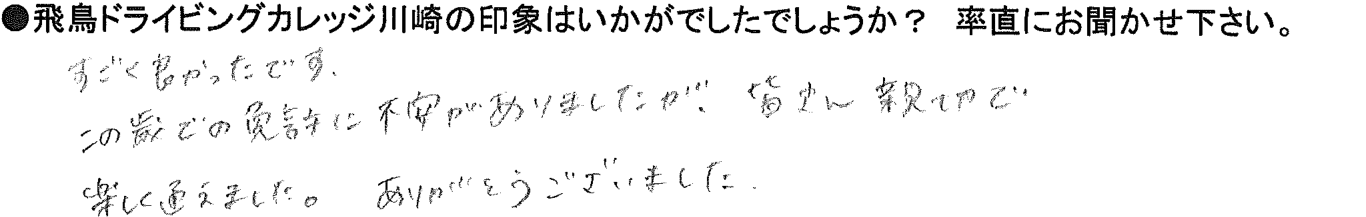 ●飛鳥ドライビングカレッジ川崎の印象はいかがでしたでしょうか？　率直にお聞かせ下さい。
すごく良かったです.
この歳での免許に不安がありましたが、皆さん親切で
楽しく通えました。　ありがとうございました.